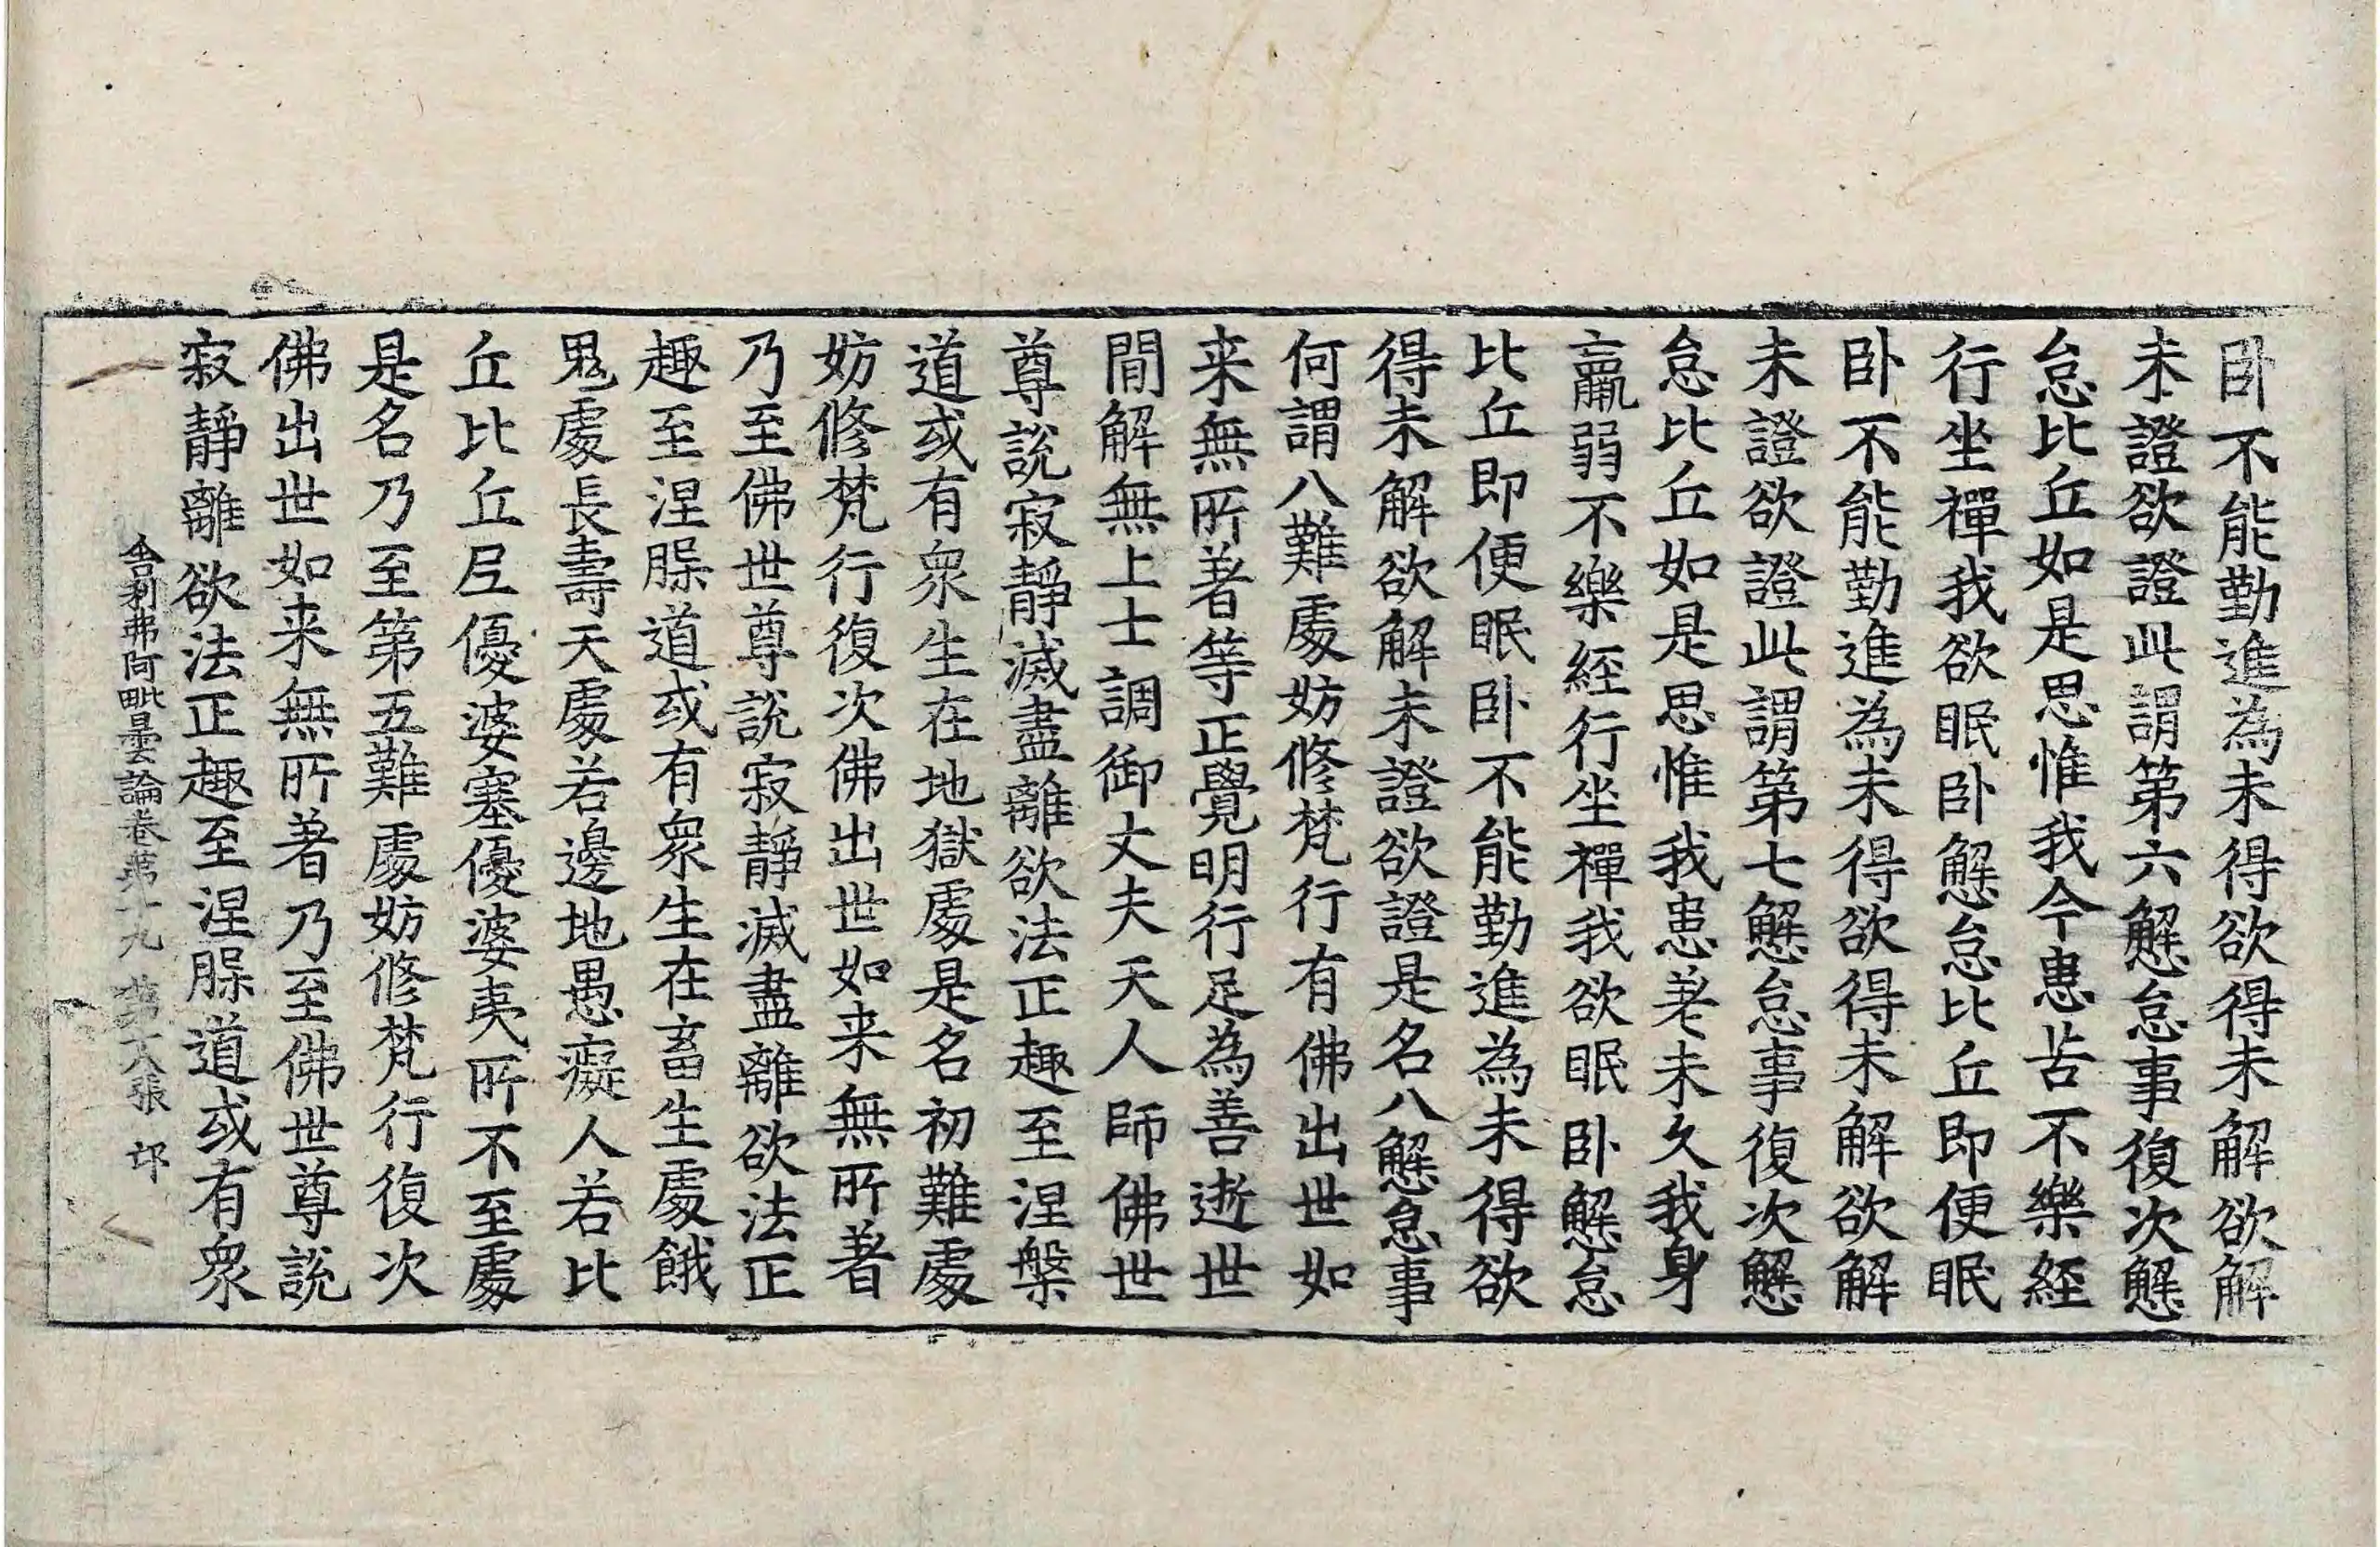 卧不能勤進為未得欲得未解欲解
未證欲證此謂第六懈怠事復次懈
怠比丘如是思惟我今患苦不樂經
行坐禪我欲眠卧懈怠比丘即便眠
卧不能勤進為未得欲得未解欲解
未證欲證此謂第七懈怠事復次懈
怠比丘如是思惟我患差未久我身
羸弱不樂経行坐禪我欲眠卧懈怠
比丘即便眠卧不能勤進為未得欲
得未解欲解未證欲證是名八懈怠事
何謂八難處妨修梵行有佛出世如
来無所著等正覺明行足為善逝世
間解無上士調御丈夫天人師佛世
尊說寂靜滅盡離欲法正趣至涅槃
道或有衆生在地獄處是名初難處
妨修梵行復次佛出世如来無所著
乃至佛世尊說寂靜滅盡離欲法正
趣至涅槃道或有衆生在畜生處餓
鬼處長壽天處若邊地愚癡人若比
丘比丘尼優婆塞優婆夷所不至處
是名乃至第五難處妨修梵行復次
佛出世如来無所著乃至佛世尊說
寂靜離欲法正趣至涅槃道或有衆
舍利弗阿毗曇論卷第十九 第六張 邙